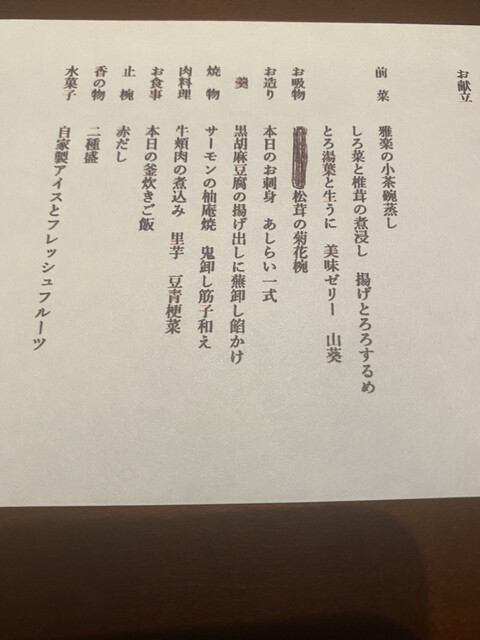 お献立
前菜
雅楽の小茶碗蒸し
しろ菜と椎茸の煮浸し 揚げとろろするめ
とろ湯葉と生うに 美味ゼリー 山葵
お吸物 松茸の菊花椀
お造り 本日のお刺身 あしらい一式
羹 黒胡麻豆腐の揚げ出しに蕪卸し餡かけ
焼物 サーモンの柚庵焼 鬼卸し筋子和え
肉料理 牛頬肉の煮込み 里芋 豆青梗菜
お食事 本日の釜炊きご飯
止椀 赤だし
香の物 二種盛
水菓子 自家製アイスとフレッシュフルーツ